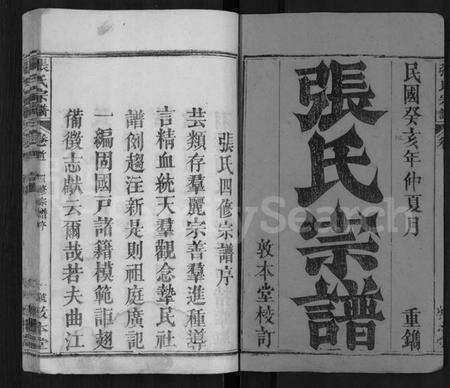 民國癸亥年仲夏月
重鐫
張氏宗譜
敦本堂校訂
張氏四修宗譜序
芸類存羣麗宗善羣進種導
言精血統天羣觀念摯民社
譜例趨注新是則祖庭廣記
一編固國戸諸籍模範詎翅
備徵志獻云爾哉若夫曲江
張氏宗譜
卷首
敦本堂
FamilySearch